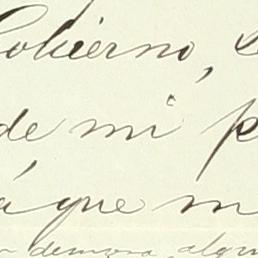 Gobierno,
de mi
á que m
demora, algun